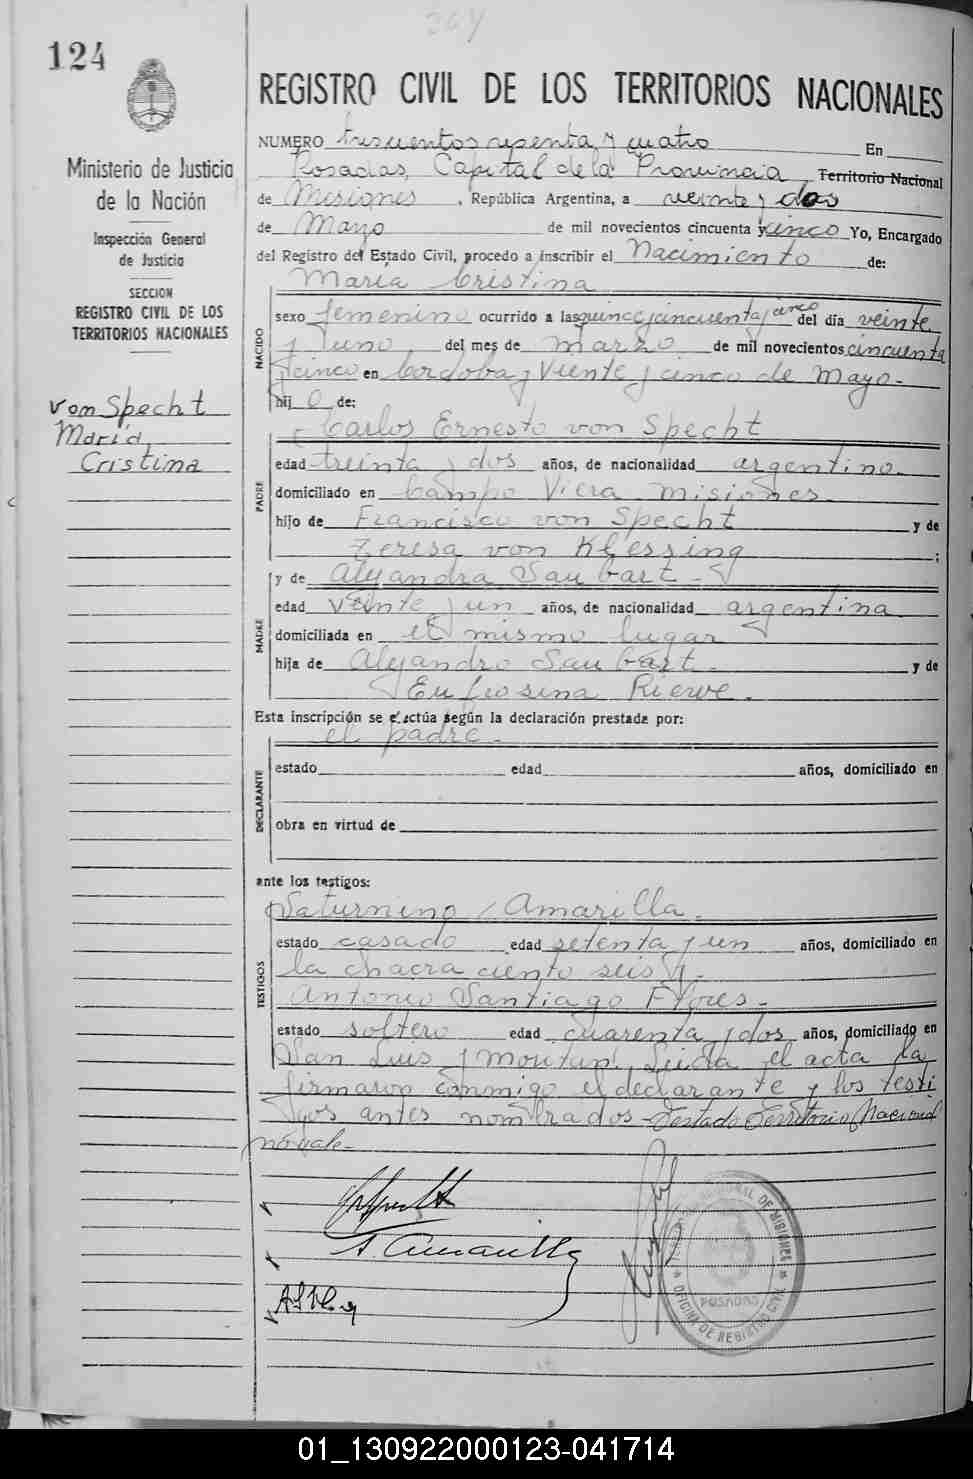 124
Ministerio de Justicia
de la Nación
Inspección General
de Justicia
SECCION
REGISTRO CIVIL DE LOS
TERRITORIOS NACIONALES
von Specht
María
Cristina
REGISTRO CIVIL DE LOS TERRITORIOS NACIONALES
NUMERO trescientos y cuatro En
Posadas, Capital de la Provincia, Territorio Nacional
de Misiones, República Argentina, a veinte y dos
de Marzo de mil novecientos cincuenta y cinco Yo, Encargado
del Registro del Estado Civil, procedo a inscribir el Nacimiento de:
María Cristina
NACIDO
sexo femenino ocurrido a las quince y cincuenta y cinco del día veinte
y uno del mes de marzo de mil novecientos cincuenta
y cinco en Cordoba y Viente y cinco de Mayo.-
hij a de:
PADRE
Carlos Ernesto von Specht
edad treinta y dos años, de nacionalidad argentino.
domiciliado en Campo Viera Misiones.
hijo de Francisco von Specht y de
Teresa von Klessing ;
y de Alejandra Saubart.-
MADRE
edad veinte y un años, de nacionalidad argentina
domiciliada en el mismo lugar
hija de Alejandro Saubart. y de
Eufrosina Rierve.
Esta inscripción se efectúa según la declaración prestada por:
el padre.-
DECLARANTE
estado edad años, domiciliado en
obra en virtud de
ante los testigos:
TESTIGOS
Saturnino Amarilla.
estado casado edad setenta y un años, domiciliado en
la chacra ciento seis y.-
Antonio Santiago Flores.-
estado soltero edad cuarenta y dos años, domiciliado en
San Luis y Leida el acta la
firmaron conmigo el declarante y los testi
gos antes nombrados.- Testado Territorio Nacional
no vale.-
S. Amarilla
NACIONAL DE MISIONES
POSADAS
OFICINA DE REGISTRO CIVIL
01_130922000123-041714